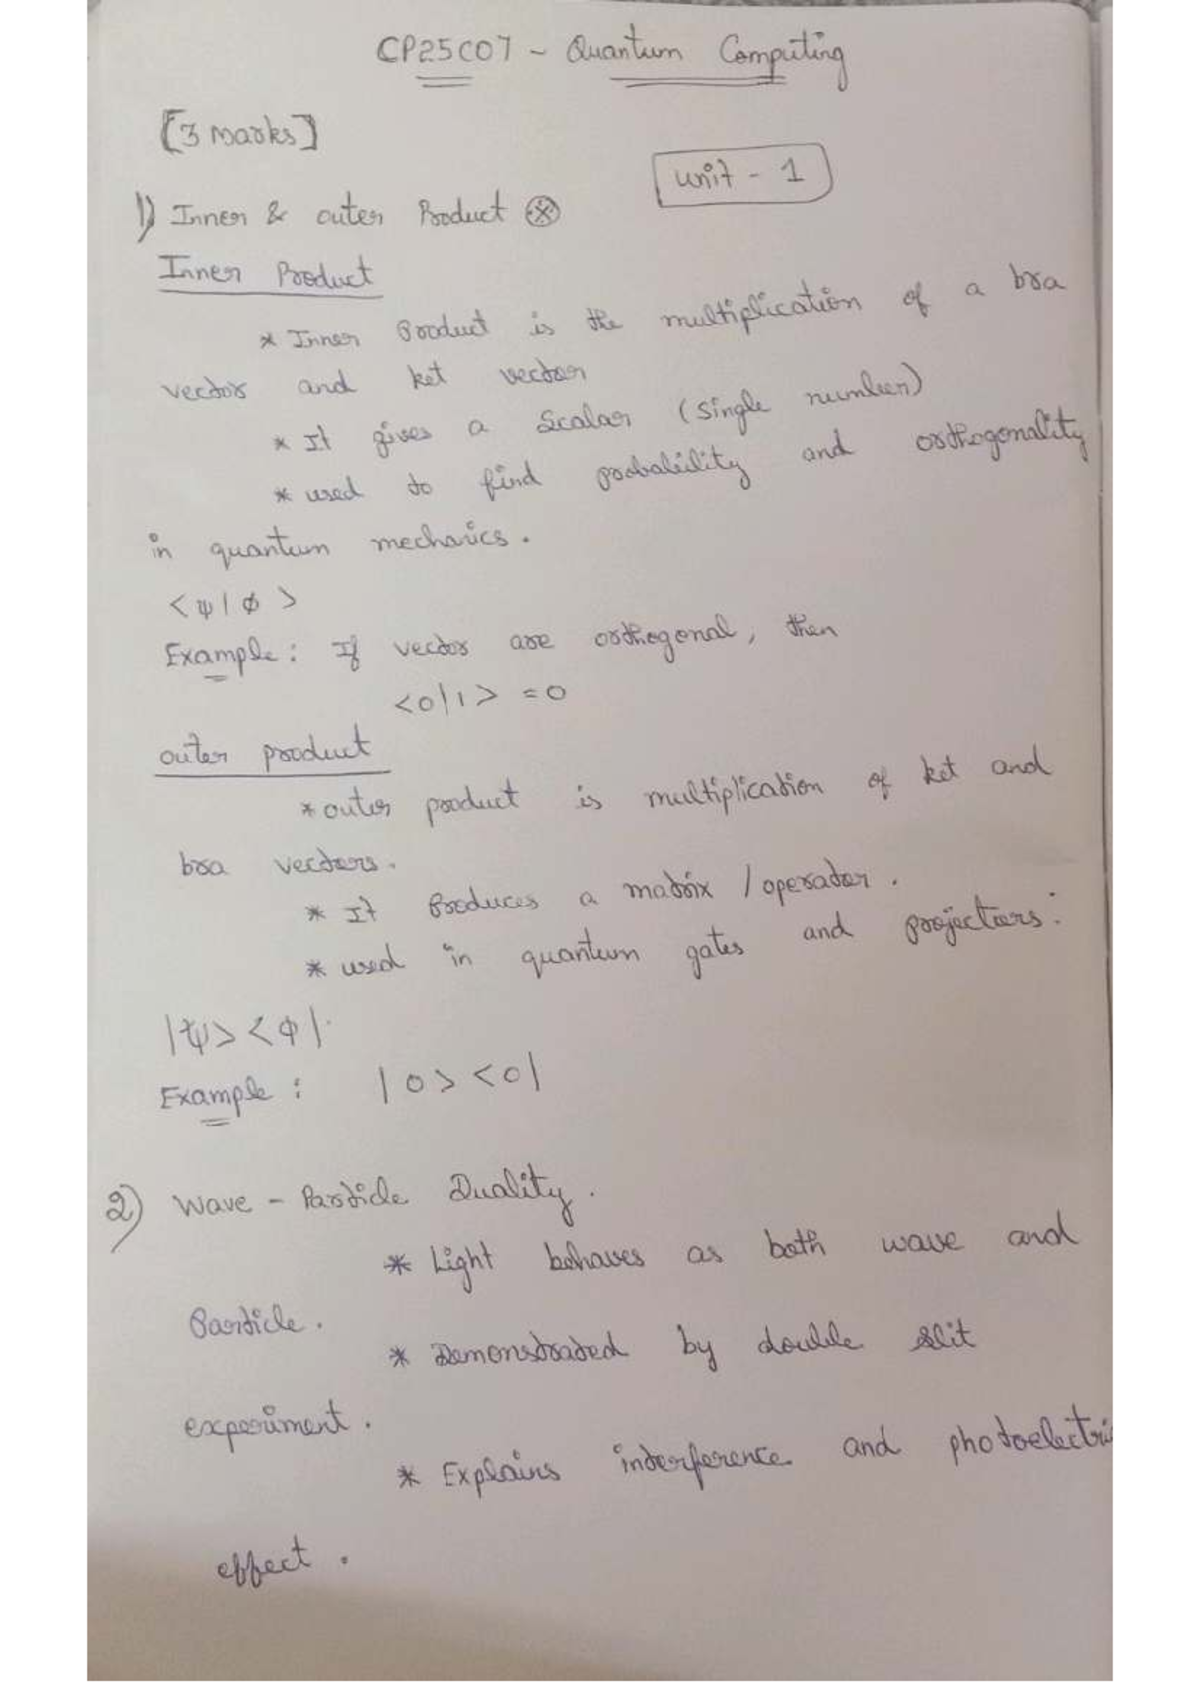 CP25C07 - Quantum Computing
[3 marks]
unit - 1
1) Inner & outer Product ⊗
Inner Product
* Inner Product is the multiplication of a bra
vector and ket vector
* It gives a Scalar (single number)
* used to find probability and orthogonality
in quantum mechanics.
<ψ|ϕ>
Example: If vector are orthogonal, then
<0|1> =0
outer product
* outer product is multiplication of ket and
bra vectors.
* It Produces a matrix / operator.
* used in quantum gates and projectors.
|ψ><ϕ|.
Example: |0><0|
2) Wave - Particle Duality.
* Light behaves as both wave and
Particle.
* Demonstrated by double slit
experiment.
* Explains interference and photoelectric
effect.